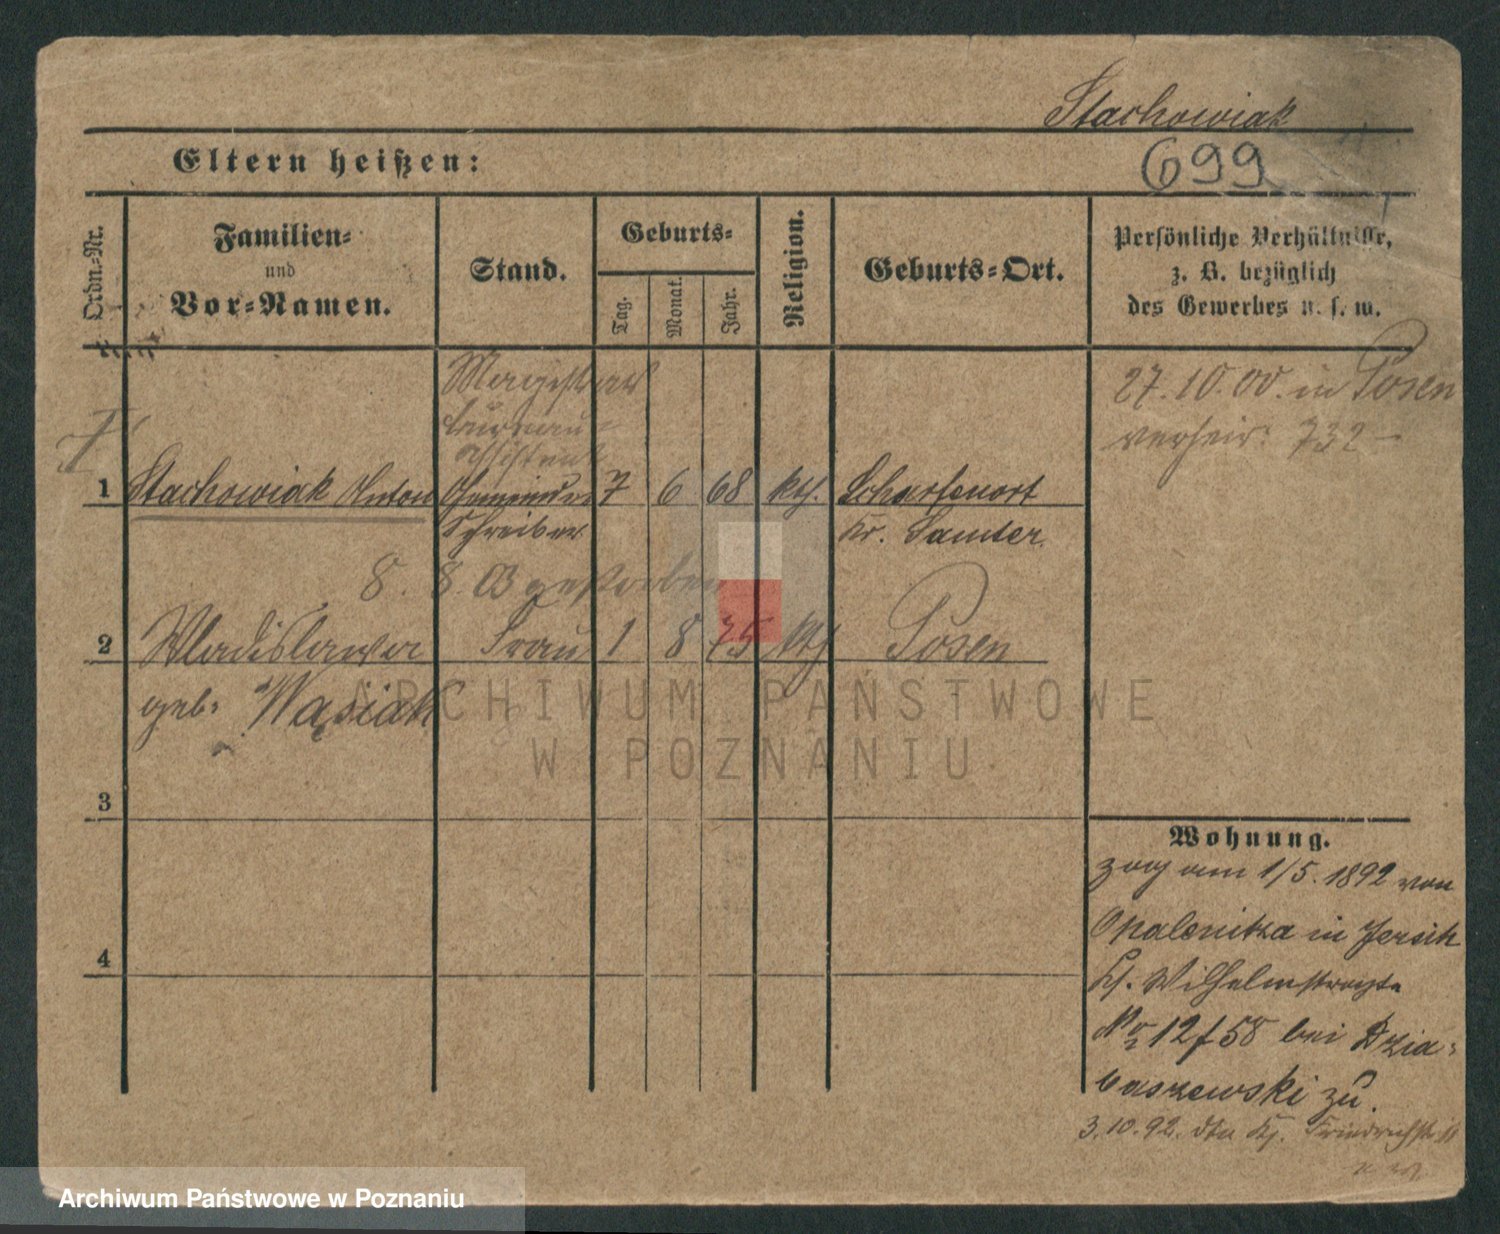 Stachowiak
Eltern heißen:
699
Ordn.-Nr.
Familien-
und
Vor-Namen.
Stand.
Geburts-
Tag.
Monat.
Jahr.
Religion.
Geburts-Ort.
Persönliche Verhältnisse,
z. B. bezüglich
des Gewerbes u. s. w.
Magistrat
bureau-
Assistent
27.10.00. in Posen
verheir. 732 -
1 Stachowiak Anton Gemeinde 7 6 68 kth. Scharfenort
Schreiber Kr. Samter.
8. 8. 03 gestorben
2 Wladislawa Frau 1 8 75 kth Posen
geb. Wąsiak
ARCHIWUM PAŃSTWOWE
W POZNANIU
3
4
Wohnung.
zog am 1/5. 1892 von
Opalenitza in Jersitz
Kl. Wilhelmstraße
No 12/58 bei Dzia-
baszewski zu.
3.10.92. dto Friedrichstr.
Archiwum Państwowe w Poznaniu